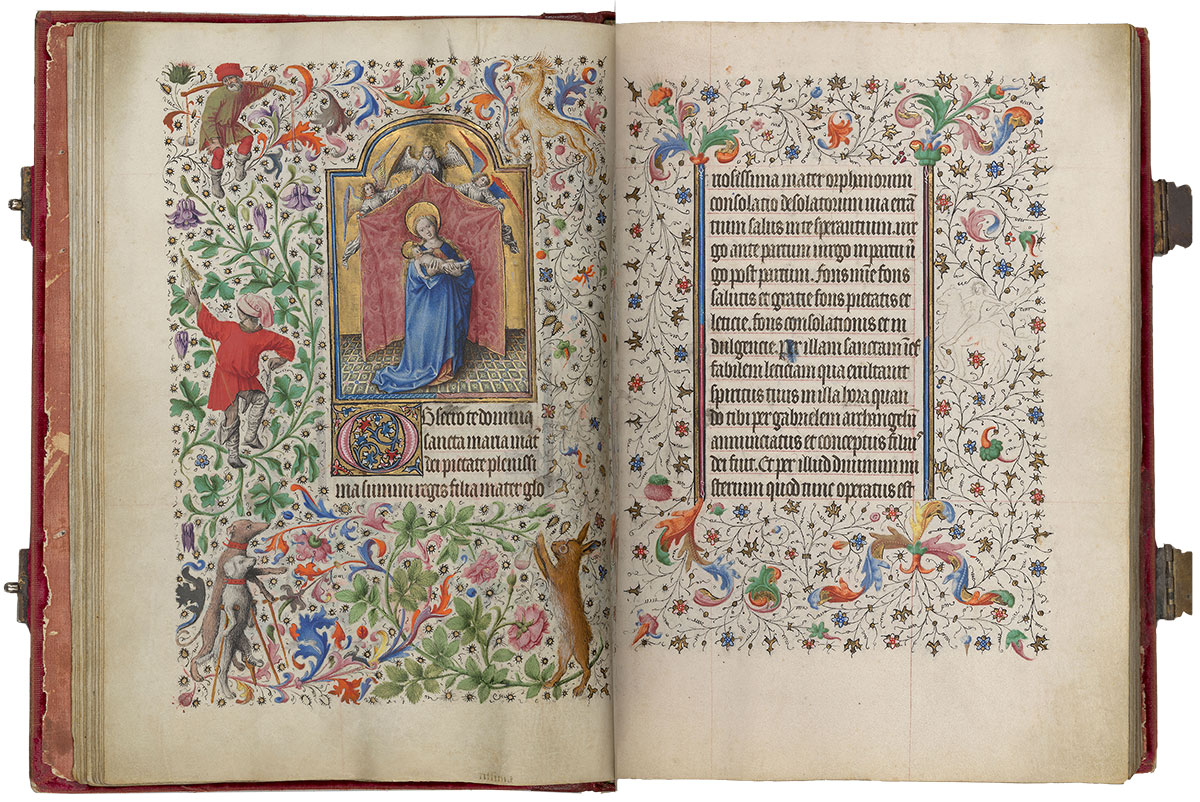 Obsecro te domina
sancta maria mat̄
dei pietate plenissi
ma summi regis filia mater glo
riosissima mater orphanorum
consolatio desolatorum via errā
tium salus in te sperantium. vir
go ante partum virgo in partu v̄
go post partum. fons mīe fons
salutis et gratie fons pietatis et
leticie. fons consolationis et in
dulgencie. Per illam sanctam inef
fabilem leticiam qua exultavit
spiritus tuus in illa hora quan
do tibi per gabrielem archangelū
annunciatus et conceptus filius
dei fuit. Et per illud divinum mi
sterium quod tunc operatus est